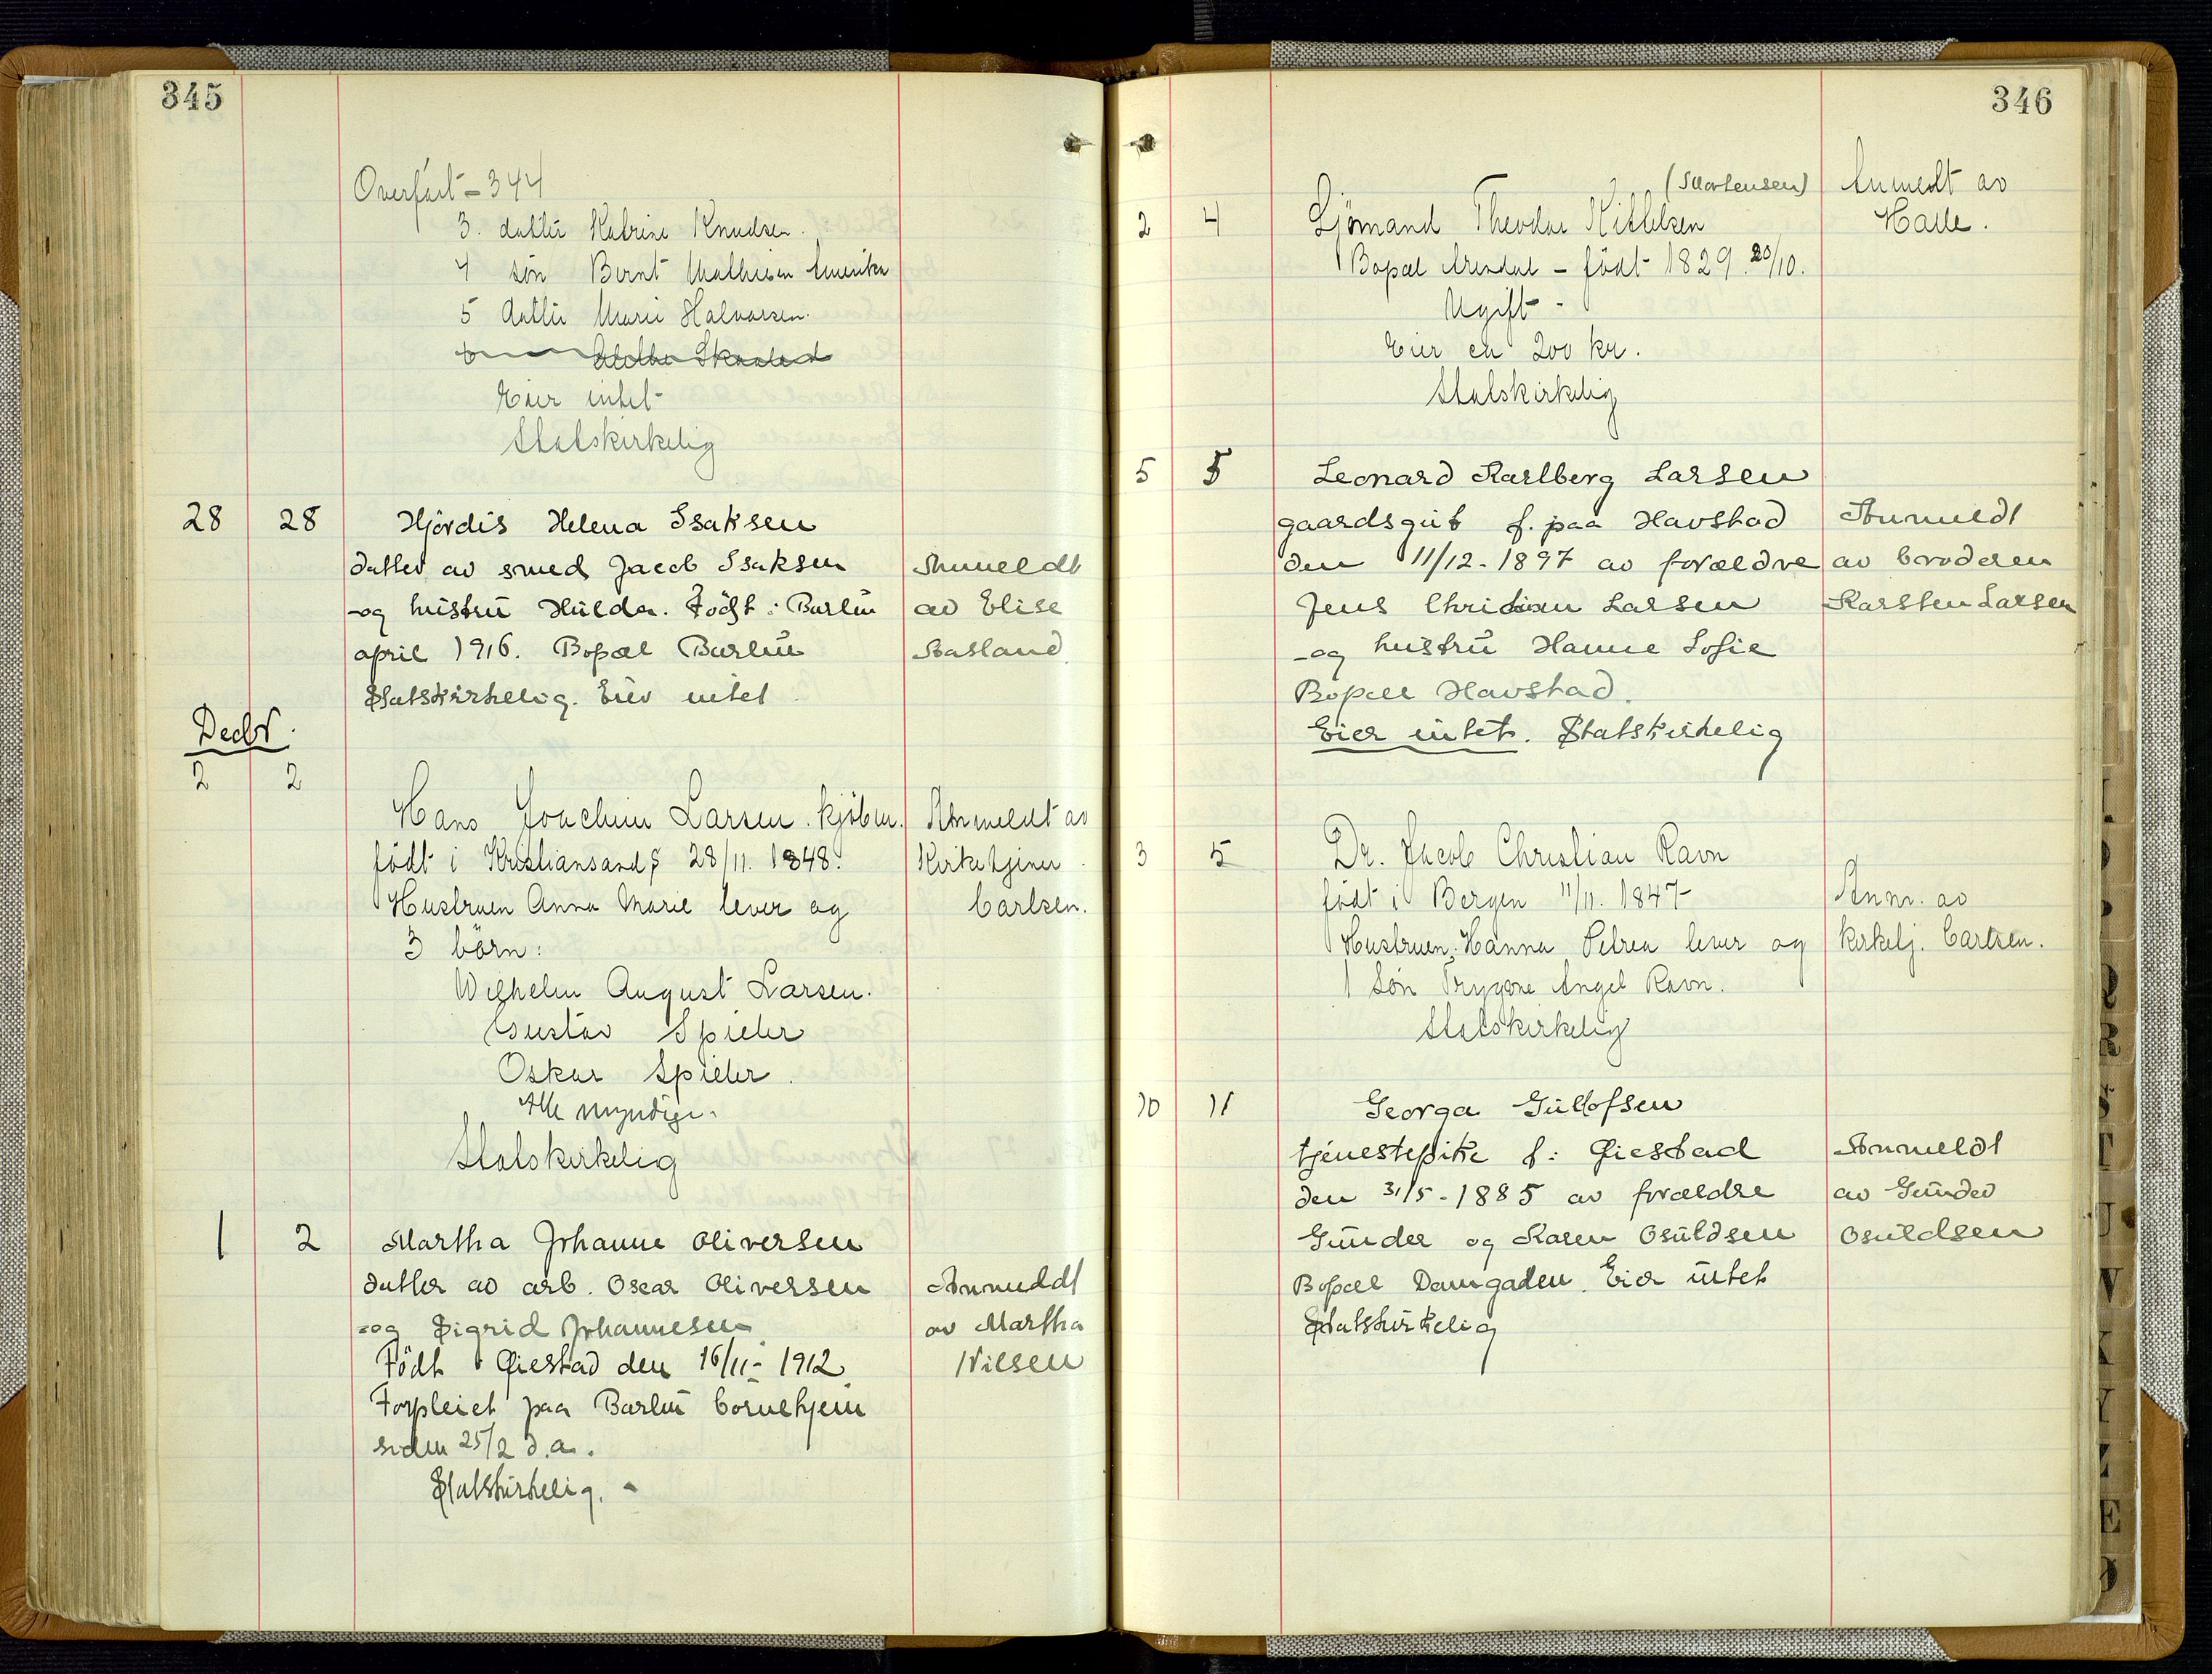 345
Overført - 344
3. datter Katrine Knudsen.
4 søn Bernt Mathisen Amerika
5 datter Marie Halvorsen.
Eier intet
Statskirkelig
28 28 Hjördis Helena Isaksen
datter av smed Jacob Isaksen
og hustru Hulda. Födt i Barbu
april 1916. Bopæl Barbu
Statskirkelig. Eier intet
Anmeldt
av Elise
Aasland
Decbr.
2 2
Hans Joachim Larsen. kjøbm.
født i Kristiansand S 28/11. 1848.
Hustruen Anna Marie lever og
3 børn:
Wilhelm August Larsen.
Gustav Spieler
Oskar Spieler.
Alle myndige.
Statskirkelig
Anmeldt av
Kirketjener
Carlsen.
1 2 Martha Johanne Oliversen
datter av arb. Oscar Oliversen
og Sigrid Johannesen
Födt i Öiestad den 16/11 - 1912
Forpleiet paa Barbu börnehjem
siden 25/2 d.a.
Statskirkelig. -
Anmeldt
av Martha
Nilsen
346
(Mortensen)
2 4 Sjømand Theodor Kittelsen
Bopæl Arendal - født 1829. 20/10.
Ugift -
Eier ca 200 kr.
Statskirkelig
Anmeldt av
Halle.
5 5 Leonard Karlberg Larsen
gaardsgut f. paa Havstad
den 11/12 - 1897 av forældre
Jens Christian Larsen
og hustru Hanne Sofie
Bopæl Havstad.
Eier intet. Statskirkelig
Anmeldt
av broderen
Karsten Larsen
3 5 Dr. Jacob Christian Ravn
født i Bergen 11/11. 1847
Hustruen: Hanna Petrea lever og
1 søn Trygve Angel Ravn.
Statskirkelig
Anm. av
kirketj. Carlsen.
10 11 Georga Gullofsen
tjenestepike f. i Öiestad
den 31/5 - 1885 av forældre
Gunder og Karen Osuldsen
Bopæl Damgaden. Eier intet
Statskirkelig
Anmeldt
av Gunder
Osuldsen